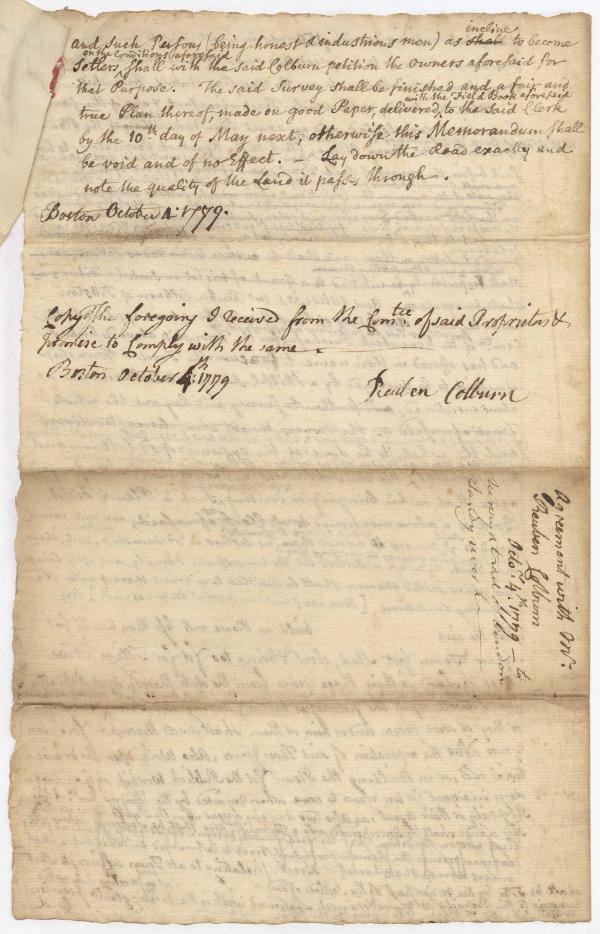 incline
and such Persons (being honest & industrious men) as shall to become
on the Conditions aforesaid
Setlers, shall with the said Colburn petition the Owners aforesaid for
that Purpose. The said Survey shall be finished and a fair and
with the Field Book aforesaid
true Plan thereof, made on good Paper, delivered, to the said Clerk
by the 10th day of May next, otherwise this Memorandum shall
be void and of no Effect. — Lay down the Road exactly and
note the quality of the Land it passes through.
Boston October 4: 1779.
Copy of the foregoing I received from the Comtee of said Proprietors &
promise to Comply with the same
Boston October 4th: 1779
Reuben Colburn
Agreement with Mr.
Reuben Colburn
Octor. 4th. 1779 — to
Survey a road
Sandy river &